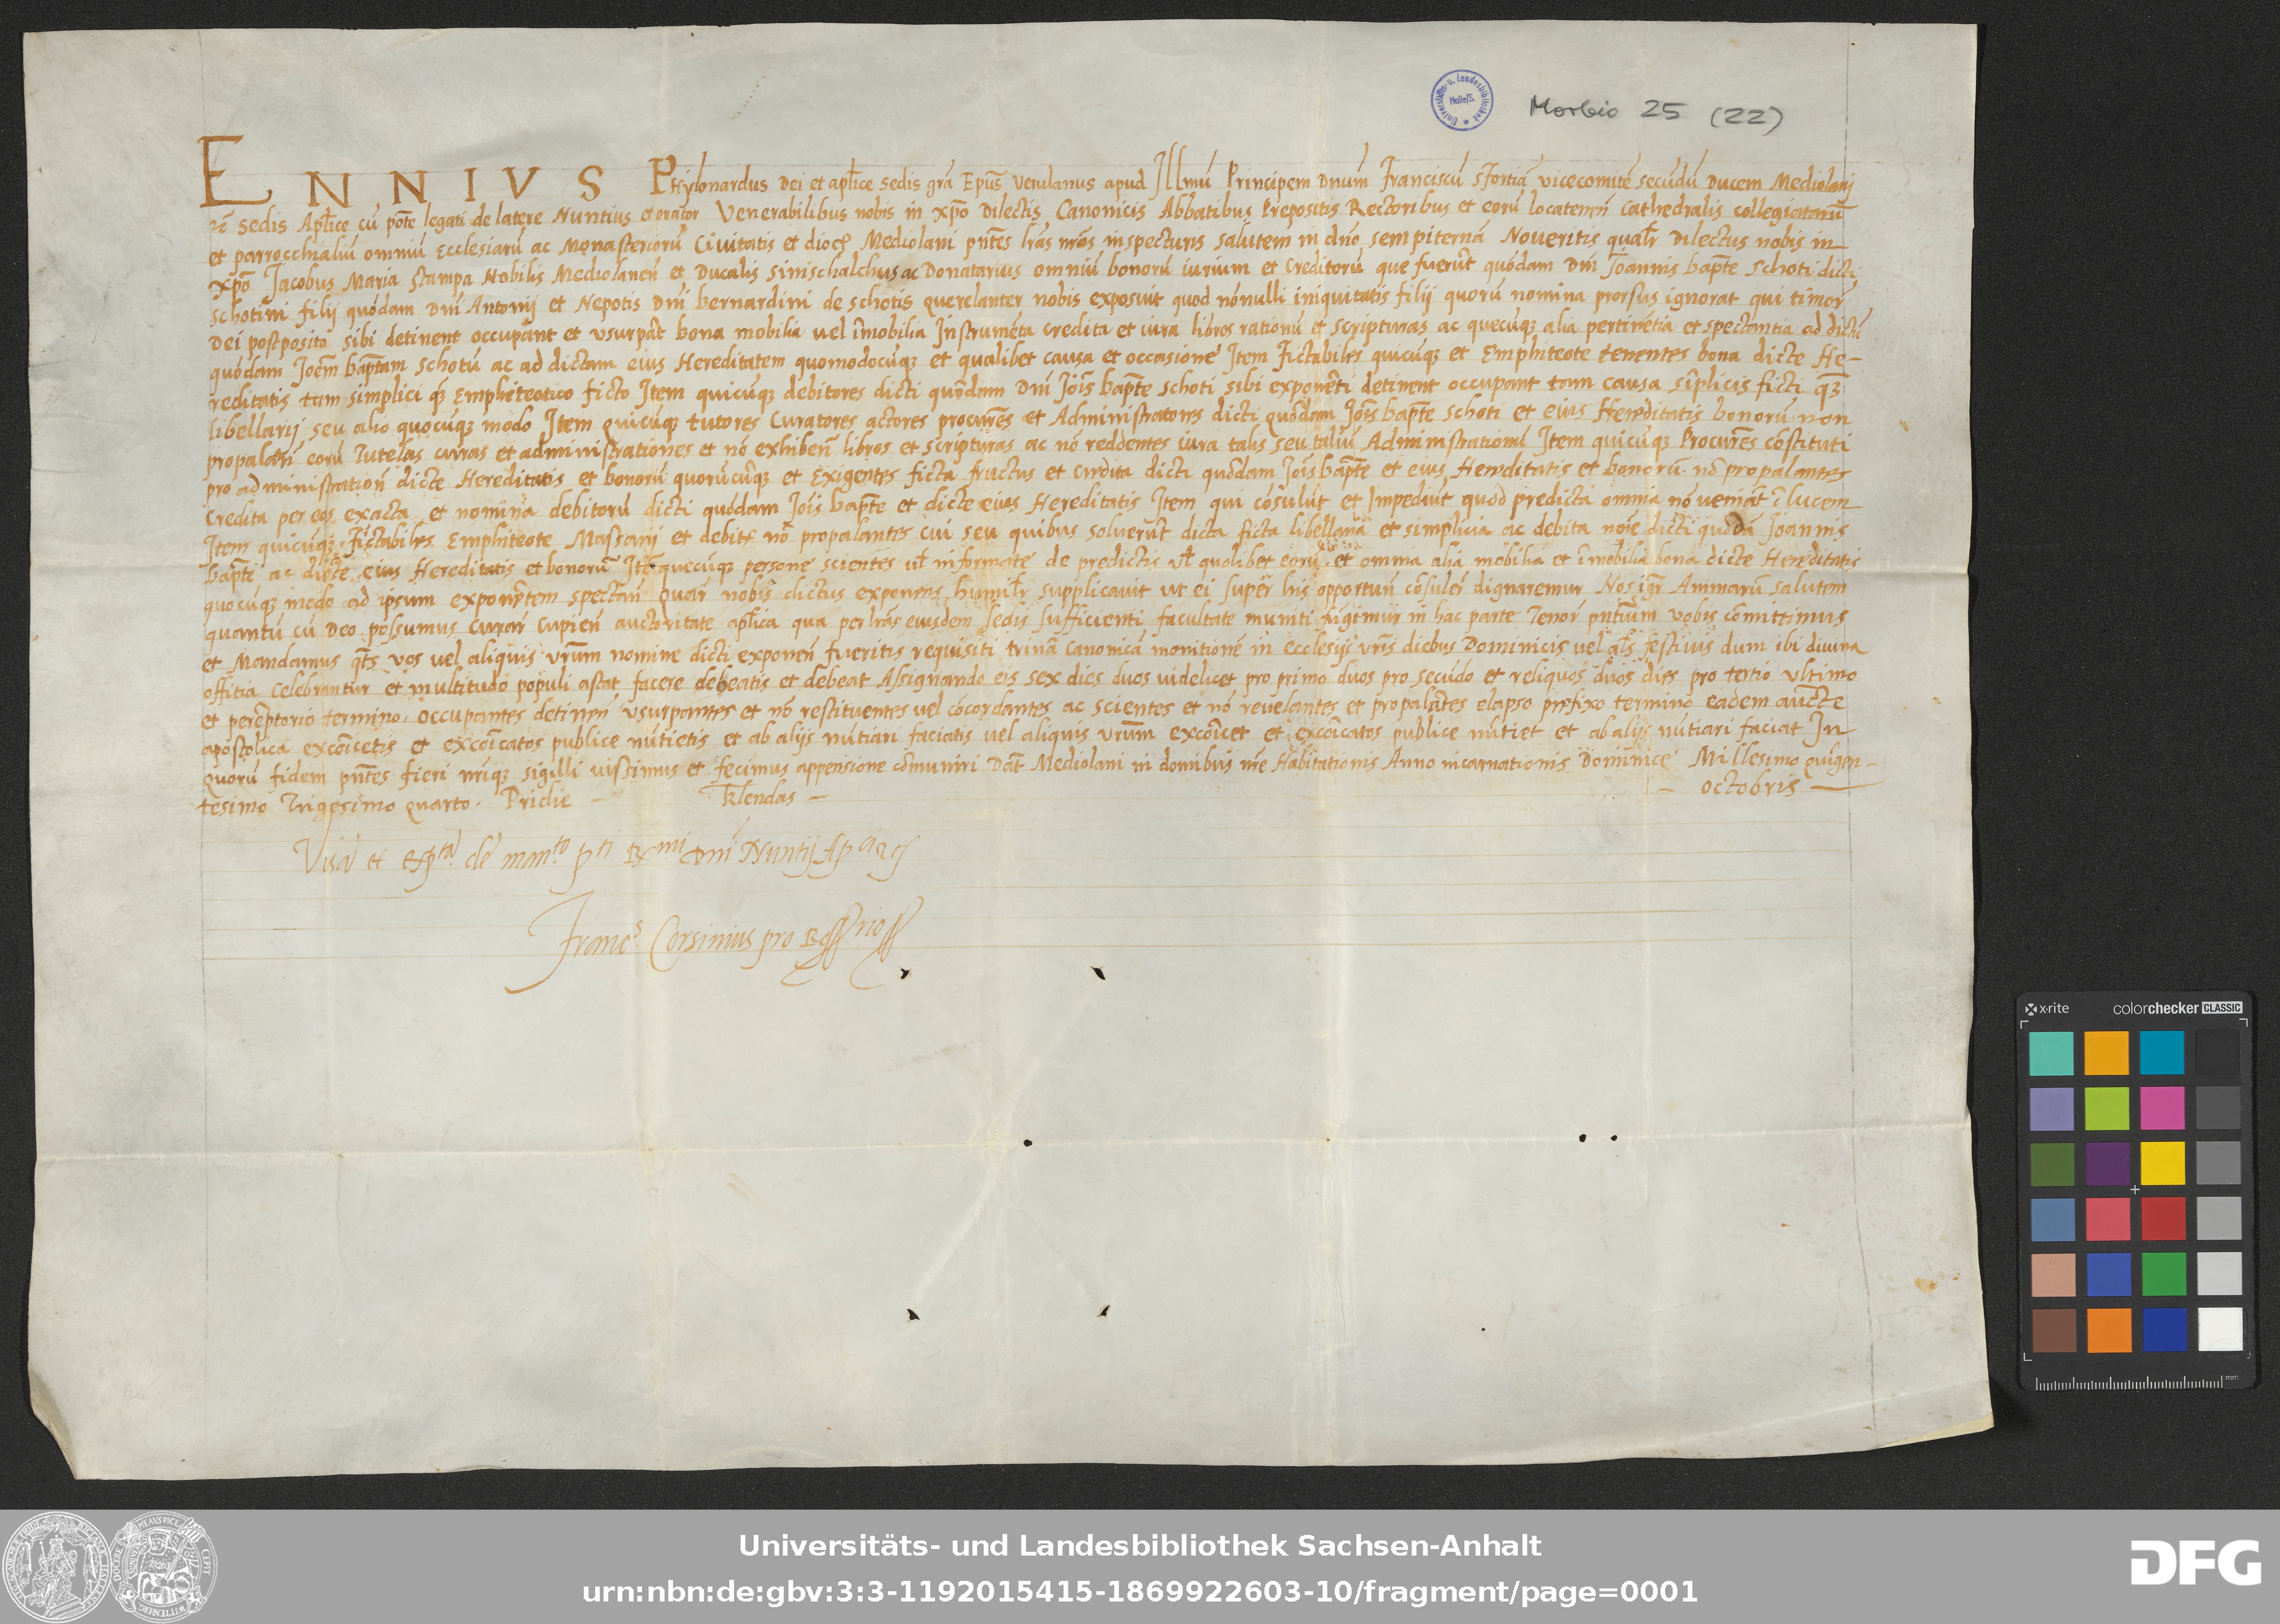 Universitäts- u. Landesbibliothek Halle/S.
Morbio 25 (22)
ENNIVS Phylonardus Dei et aplice sedis gra Epus Verulanus apud Illmu Principem Dnum Franciscu Sfortia vicecomite secudu Ducem Mediolanj
sedis Aplice cu pote legati de latere Nuntius et orator Venerabilibus nobis in xpo Dilectis Canonicis Abbatibus Prepositis Rectoribus et eoru locatenen Cathedralis collegiataru
et parrocchialiu omniu Ecclesiaru ac Monasterioru Civitatis et dioc Mediolani pntes lras nras inspecturis salutem in dno sempiterna Noveritis qualr Dilectus nobis in
xpo Jacobus Maria Stampa Nobilis Mediolanen et Ducalis sinischalchus ac Donatarius omniu bonoru iurium et Creditoru que fuerut quodam Dni Joannis bapte Schoti dicti
schotini filij quodam Dni Antonij et Nepotis Dni bernardini de schotis querelanter nobis exposuit quod nonulli iniquitatis filij quoru nomina prorsus ignorat qui timor
Dei postposito sibi detinent occupant et vsurpat bona mobilia vel imobilia Instrumeta credita et iura libros rationu et scripturas ac quecuqz alia pertinetia et spectantia ad dictu
quodam Joem baptam schotu ac ad dictam eius Hereditatem quomodocuqz et qualibet causa et occasione Item Fictabiles quicuqz et Emphiteote tenentes bona dicte He-
reditatis tam simplici qz Emphiteotico ficto Item quicuqz debitores dicti quodam Dni Jois bapte schoti sibi exponeti detinent occupant tam causa siplicis ficti qz
libellarij seu alio quocuqz modo Item quicuqz tutores Curatores actores procures et Administratores dicti quodam Jois bapte schoti et eius Hereditatis bonoru non
propalan eoru Tutelas curas et administrationes et no exhiben libros et scripturas ac no reddentes iura talis seu taliu Administrationu Item quicuqz Procures costituti
pro administration dicte Hereditatis et bonoru quorucuqz et Exigentes ficta fructus et credita dicti quodam Jois bapte et eius Hereditatis et bonoru no propalantes
Credita per eos exacta et nomina debitoru dicti quodam Jois bapte et dicte eius Hereditatis Item qui cosulut et Impediut quod predicta omnia no veniat i lucem
Item quicuqz Fictabiles Emphiteote Massarij et debit no propalantes cui seu quibus solverut dicta ficta libellaria et simplicia ac debita noie dicti quoda Joannis
bapte ac dicte eius Hereditatis et bonoru Ite quecuqz persone scientes vl informate de predictis vl quolibet eoru et omnia alia mobilia et imobilia bona dicte Hereditatis
quocuqz modo ad ipsum exponetem spectan Quar nobis dictus exponens humilr supplicavit ut ei super his opportun cosuler dignaremur Nos igr Animaru salutem
quantu cu Deo possumus Curar Cupien auctoritate aplica qua per lras eiusdem Sedis sufficienti facultate muniti fugimur in hac parte Tenor pntium vobis comittimus
et Mandamus qts vos vel aliquis vrum nomine dicti exponen fueritis requisiti trina canonica monitione in Ecclesijs vris diebus Dominicis vel als festivis dum ibi divina
offitia Celebrantur et multitudo populi astat facere debeatis et debeat Assignando eis sex dies duos videlicet pro primo duos pro secudo et reliquos duos dies pro tertio Vltimo
et pereptorio termino. occupantes detinen vsurpantes et no restituentes vel cocordantes ac scientes et no revelantes et propalates elapso prefixo termino eadem aucte
apostolica excoicetis et excoicatos publice nutietis et ab alijs nutiari faciatis vel aliquis vrum excoicet et excoicatos publice nutiet et ab alijs nutiari faciat In
Quoru fidem pntes fieri nriqz sigilli iussimus et fecimus appensione comuniri Dat Mediolani in domibus nre Habitationis Anno incarnationis Dominice Millesimo quigen-
tesimo Trigesimo quarto. Pridie - Klendas - - octobris -
Visa et de man.to pti Rx.mi Dni Nuntij
Franc.s Corsinius pro
x·rite colorchecker CLASSIC
mm
Universitäts- und Landesbibliothek Sachsen-Anhalt
urn:nbn:de:gbv:3:3-1192015415-1869922603-10/fragment/page=0001
DFG